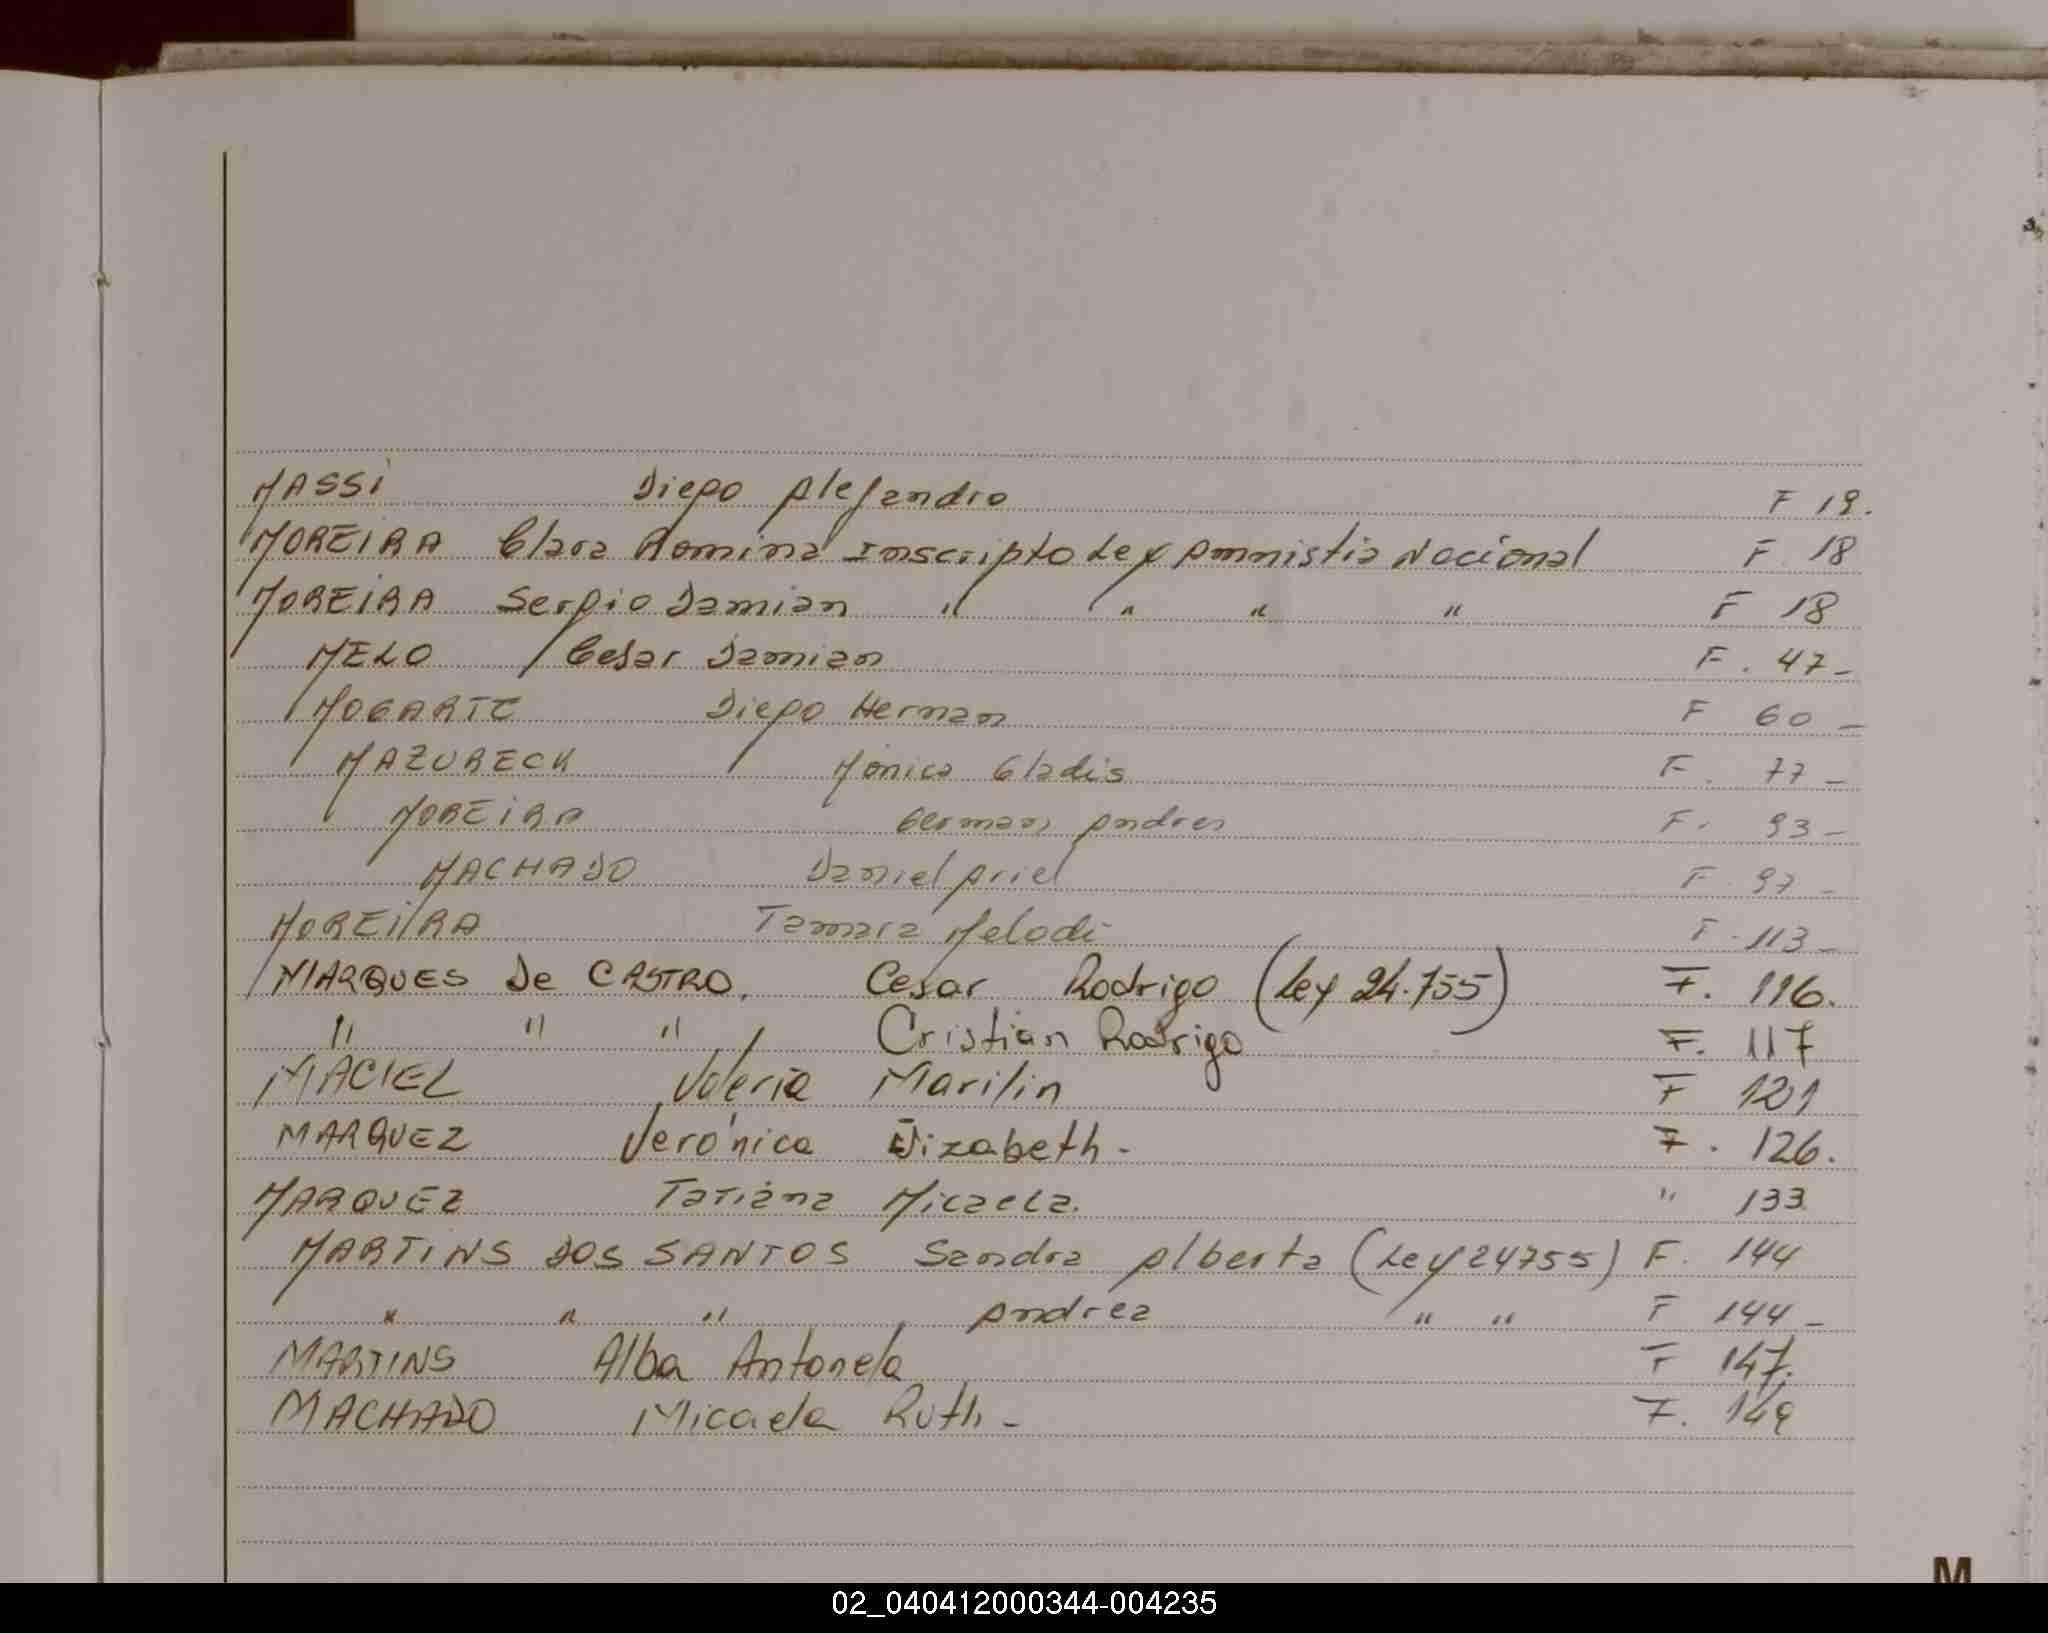 MASSi Diego Alejandro F 19.
MOREIRA Clara Romina Inscripto Ley Amnistia Nacional F 18
MOREIRA Sergio Damian " " " " F 18
MELO Cesar Damian F. 47-
MOGARTC Diego Hernan F 60-
MAZURECK Monica Gladis F. 77-
MOREIRA German Andres F. 93-
MACHADO Daniel Ariel F. 97-
MOREIRA Tamara Melodi F. 113-
MARQUES De CASTRO, Cesar Rodrigo (Ley 24.755) F. 116.
" " " Cristian Rodrigo F. 117
MACIEL Valeria Marilin F 121
MARQUEZ Verónica Elizabeth- F. 126.
MARQUEZ Tatiana Micaela. " 133
MARTINS DOS SANTOS Sandra Alberta (Ley 24755) F. 144
" " " Andrea " " F 144-
MARTINS Alba Antonela F 147.
MACHADO Micaela Ruth- F. 149
M
02_040412000344-004235